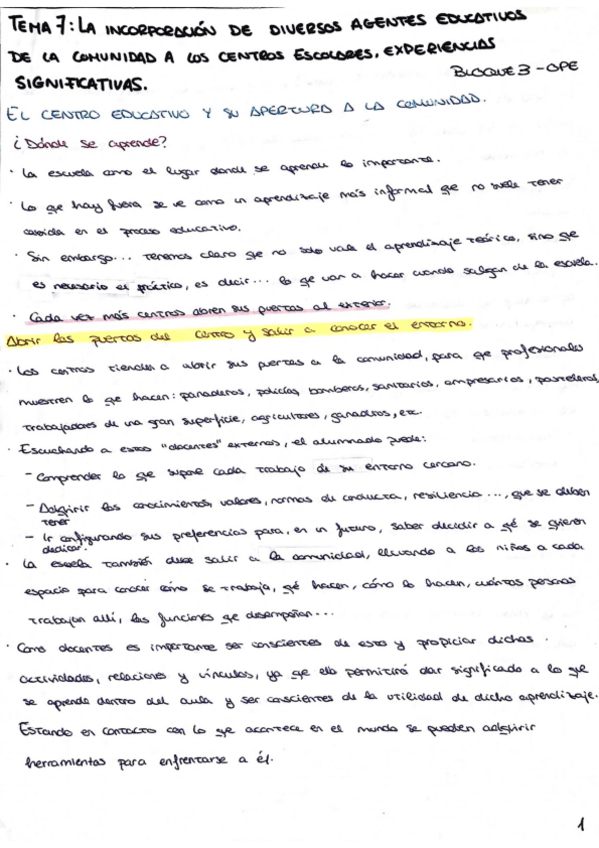 TEMA 7: LA INCORPORACIÓN DE DIVERSOS AGENTES EDUCATIVOS
DE LA COMUNIDAD A LOS CENTROS ESCOLARES. EXPERIENCIAS
SIGNIFICATIVAS.
BLOQUE 3 - OPE
EL CENTRO EDUCATIVO Y SU APERTURA A LA COMUNIDAD.
¿Dónde se aprende?
· La escuela como el lugar donde se aprende lo importante.
· Lo qe hay fuera se ve como un aprendizaje más informal qe no suele tener
cabida en el proceso educativo.
· Sin embargo... tenemos claro qe no solo vale el aprendizaje teórico, sino qe
es necesario el práctico, es decir... lo qe van a hacer cuando salgan de la escuela.
· Cada vez más centros abren sus puertas al exterior.
Abrir las puertas del centro y salir a conocer el entorno.
· Los centros tienden a abrir sus puertas a la comunidad, para qe profesionales
muestren lo qe hacen: panaderos, policías, bomberos, sanitarios, empresarios, pasteleros,
trabajadores de una gran superficie, agricultores, ganaderos, etc.
· Escuchando a estos "docentes" externos, el alumnado puede:
- Comprender lo qe supone cada trabajo de su entorno cercano.
- Adqirir los conocimientos, valores, normas de conducta, resiliencia..., que se deben
tener
- Ir configurando sus preferencias para, en un futuro, saber decidir a qé se qieren
dedicar.
· La escuela también debe salir a la comunidad, llevando a los niños a cada
espacio para conocer cómo se trabaja, qé hacen, cómo lo hacen, cuántas personas
trabajan allí, las funciones qe desempeñan...
· Como docentes es importante ser conscientes de esto y propiciar dichas
actividades, relaciones y vínculos, ya qe ello permitirá dar significado a lo qe
se aprende dentro del aula y ser conscientes de la utilidad de dicho aprendizaje.
Estando en contacto con lo qe acontece en el mundo se pueden adqirir
herramientas para enfrentarse a él.
1